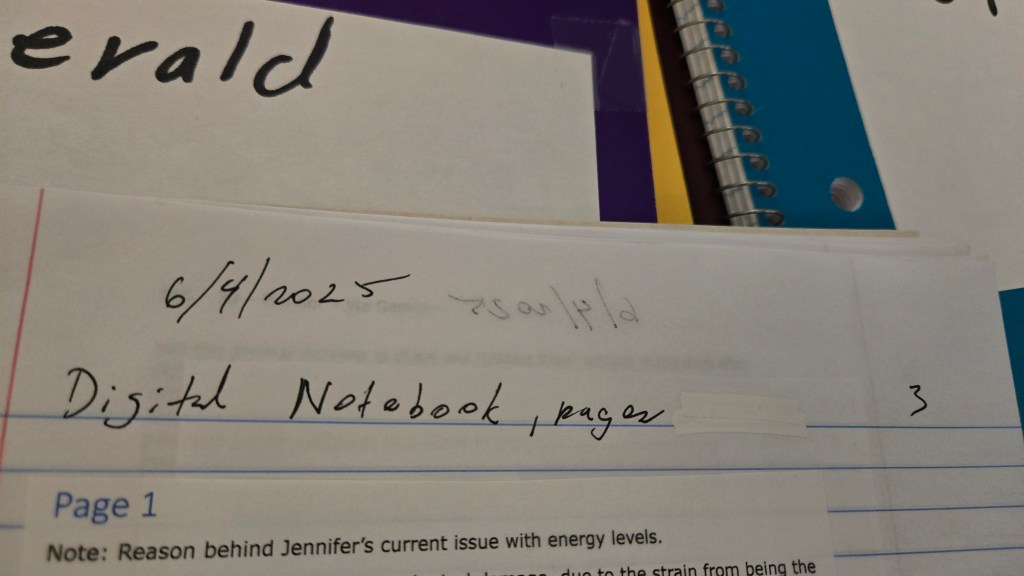 erald
6/4/2025
Digital Notebook, pages 3
Page 1
Note: Reason behind Jennifer's current issue with energy levels.
due to the strain from being the